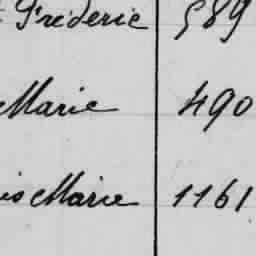 Fréderic 589
Marie 490
Marie 1161